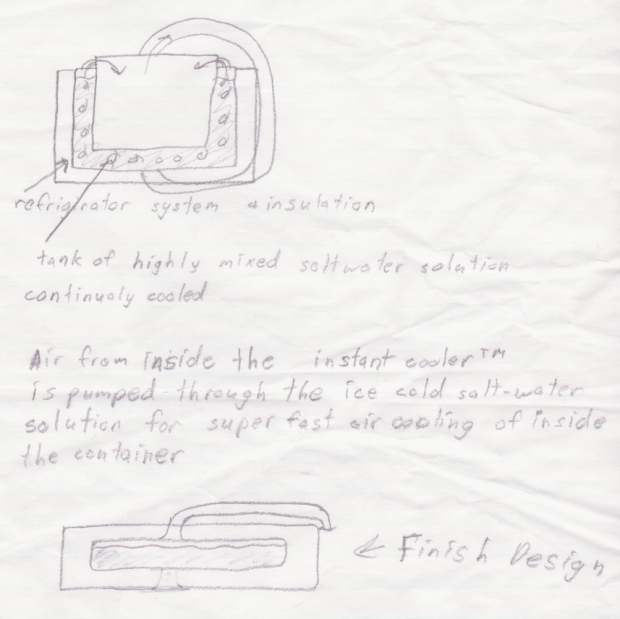 refrigirator system + insulation
tank of highly mixed saltwater solution
continualy cooled
Air from inside the instant cooler™
is pumped through the ice cold salt-water
solution for super fast air cooling of inside
the container
← Finish Design